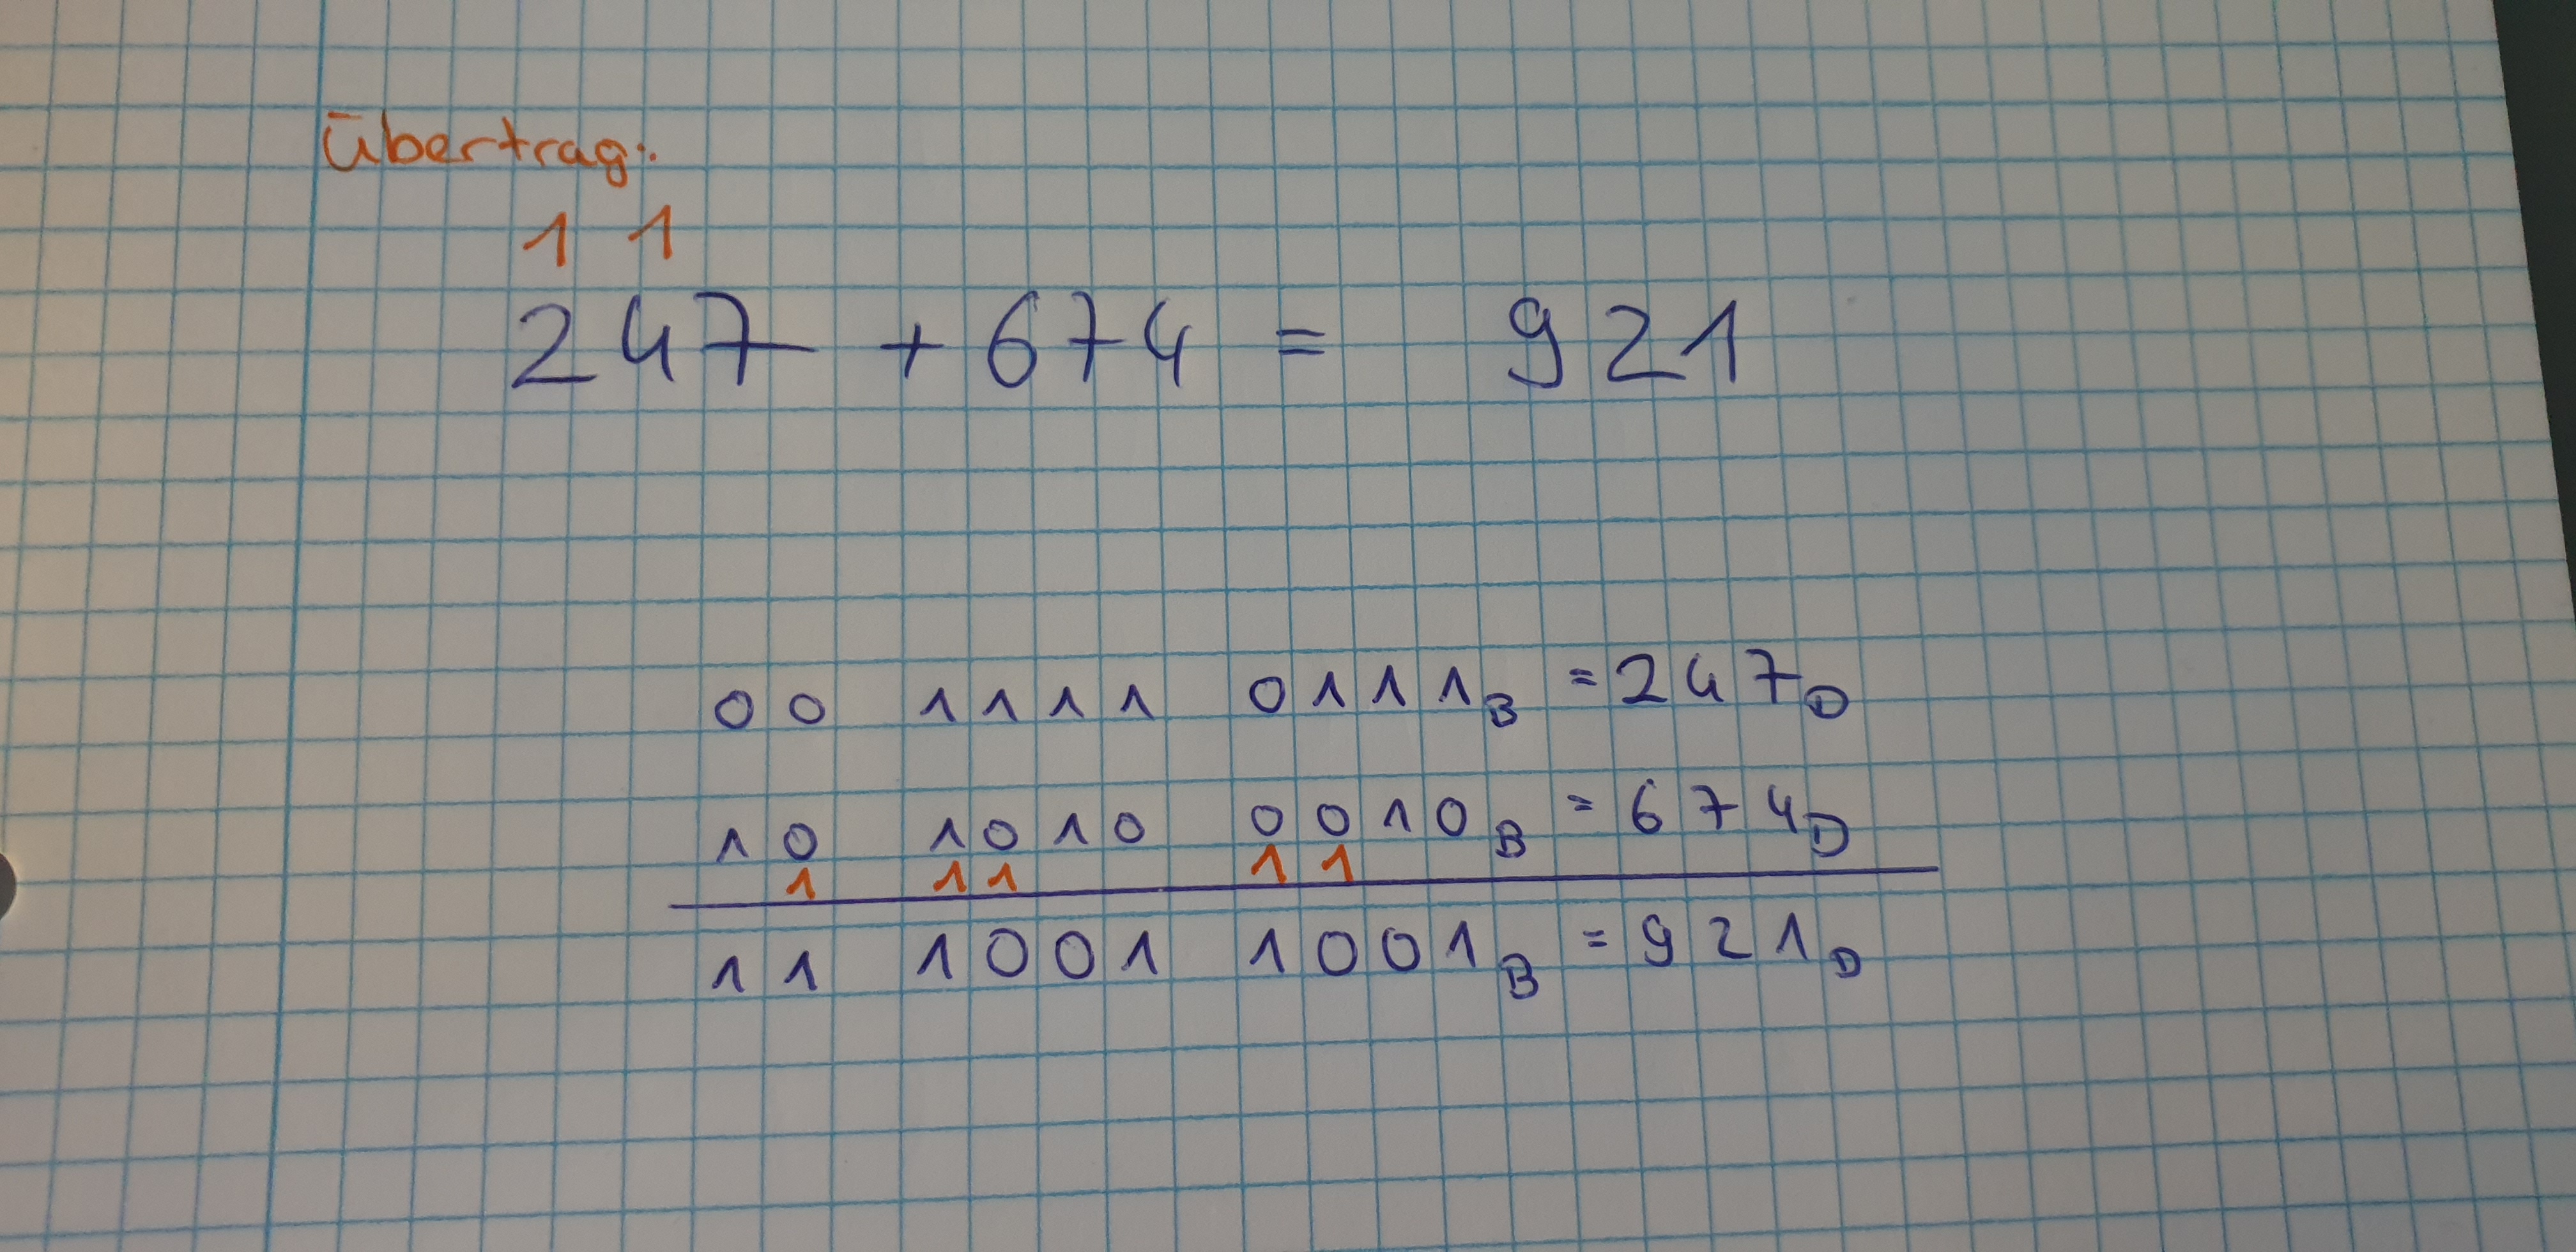 Übertrag:
1 1
247 + 674 = 921
00 1111 0111B = 247D
10 1010 0010B = 674D
1 11 11
11 1001 1001B = 921D